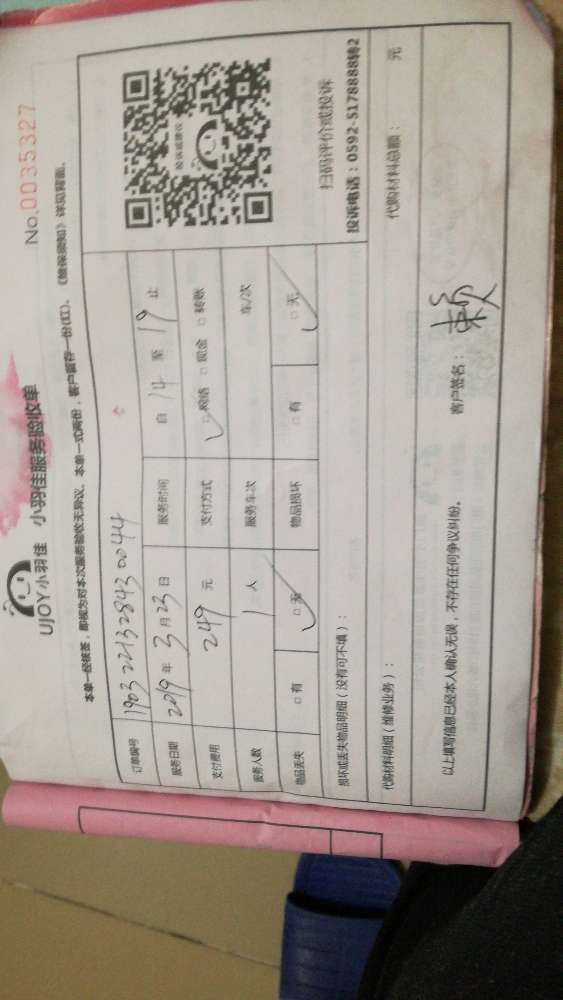 UJOY小羽佳 小羽佳服务验收单
No.0035327
本单一经核签，即视为对本次服务验收无异议。本单一式两份，客户留存一份(红)。《维保须知》详见背面。
订单编号 1903221328430044
服务日期 2019年3月23日 服务时间 自14至19止
支付费用 249元 支付方式 □网络 □现金 □转账
服务人数 1人 服务车次 车/次
物品丢失 □有 □无 物品损坏 □有 □无
投诉或建议
扫码评价或投诉
投诉电话：0592-5178888转2
损坏或丢失物品明细（没有可不填）：
代购材料明细（维修业务）： 代购材料总额： 元
以上填写信息已经本人确认无误，不存在任何争议纠纷。 客户签名：